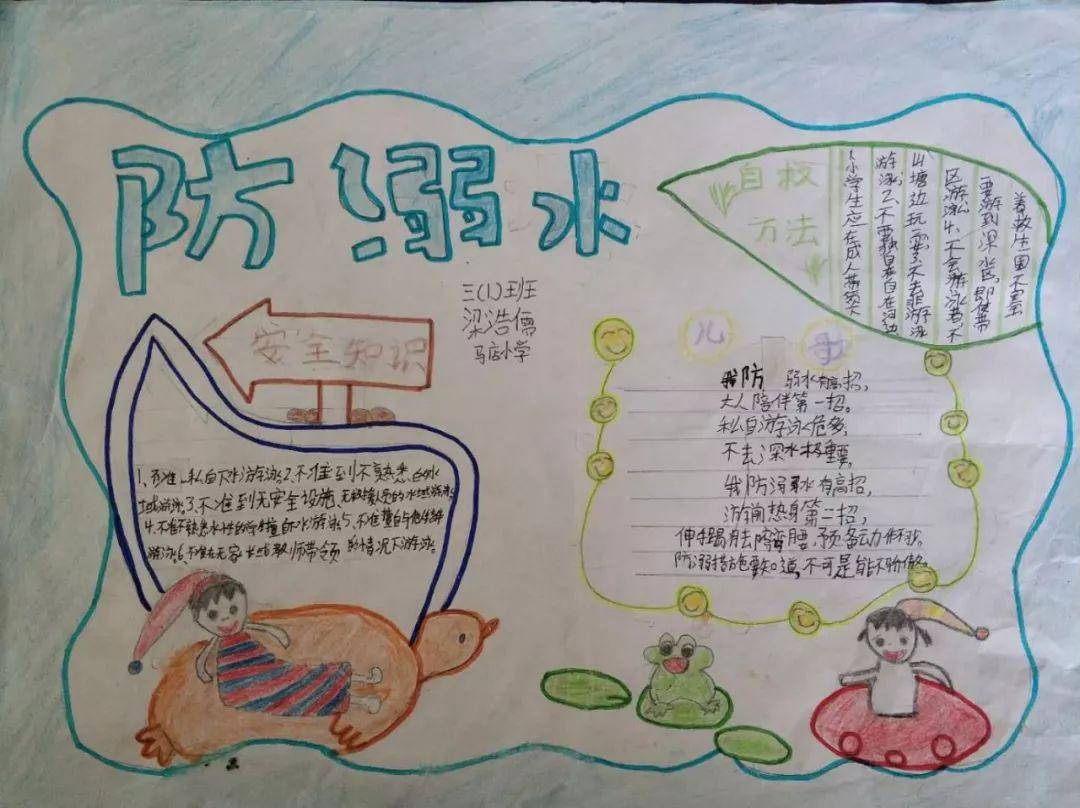 防溺水
三(1)班
梁浩儒
马店小学
安全知识
1、不准私自下水游泳2、不准到不熟悉的水
域游泳3、不准到无安全设施、无救援人员的水域游泳
4、不准不熟悉水性的学生擅自水游泳5、不准擅自与他人结伴
游泳6、不准在无家长或教师带领的情况下游泳。
自救
方法
1小学生应在成人带领下
游泳2、不要独自在河边
山塘边玩耍3、不去非游泳
区游泳4、不会游泳者,不
要游到深水区,即使带
着救生圈不安全
儿歌
我防溺水有高招,
大人陪伴第一招。
私自游泳危多,
不去深水极重要。
我防溺水有高招,
游前热身第二招,
伸手踢腿弯腰,预备动作
防溺措施要知道,不可是能不骄傲。